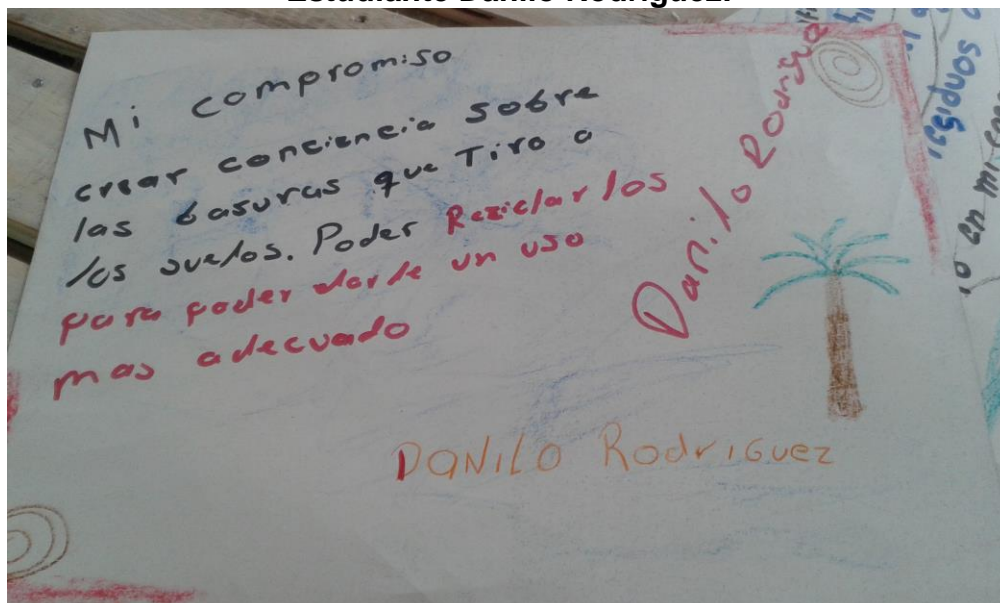 Estudiante Danilo Rodríguez.
Mi compromiso
crear conciencia sobre
las basuras que Tiro a
los suelos. Poder Reciclarlos
para poder darle un uso
mas adecuado
Danilo Rodrigue
DANILO RodriGuez
residuos
en mi